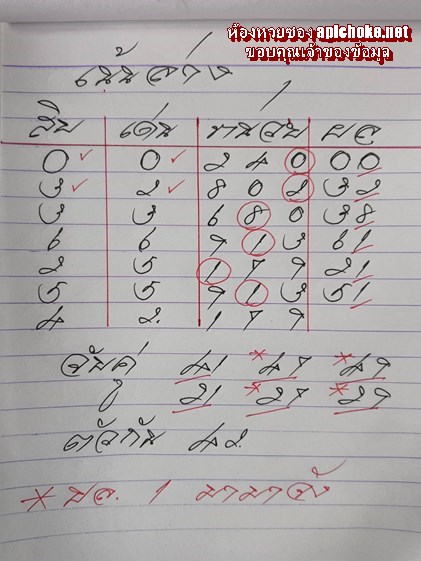 ห้องหวยซอง apichoke.net
ขอบคุณเจ้าของข้อมูล
เน้นล่าง
สิบ เด่น ชนสิบ ผล
0 0 2 4 0 00
3 2 8 0 2 32
3 3 6 8 0 38
6 6 9 1 3 61
2 5 1 7 9 21
5 5 9 1 3 51
4 2 1 7 9
จับคู่ 41 *47 *49
21 *27 *29
ตัวกัน 42